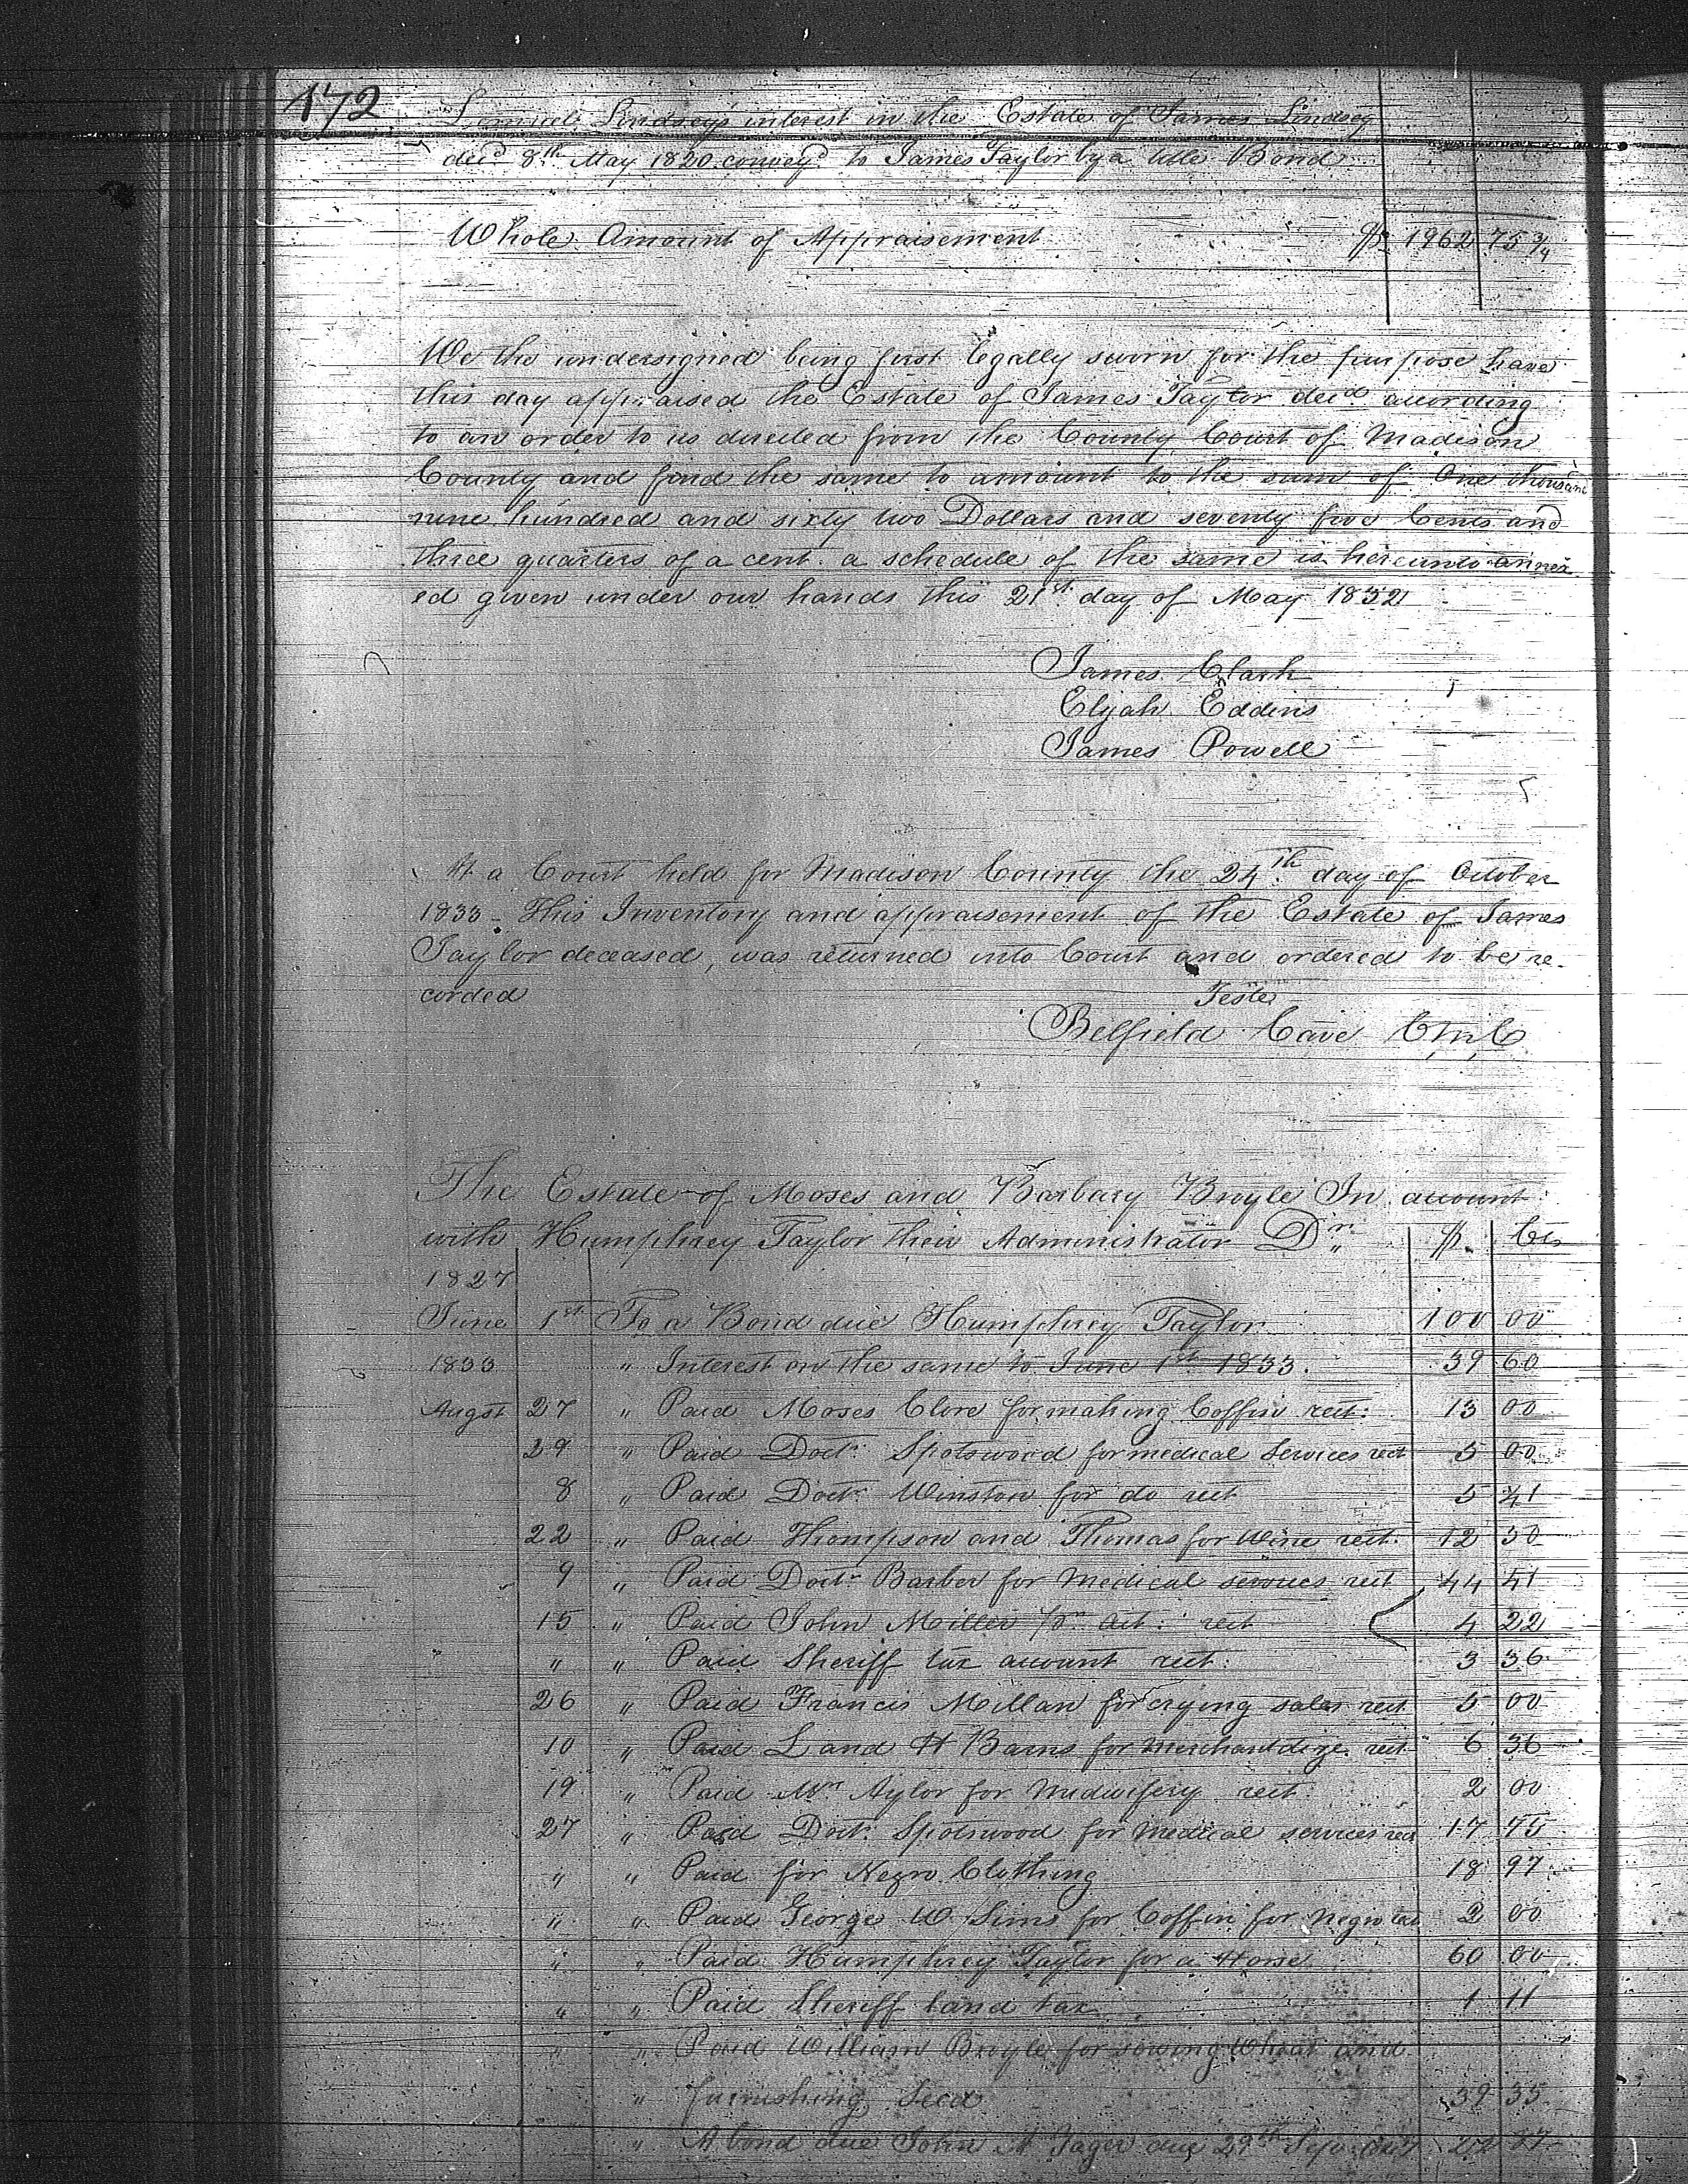 172
Lindsey's interest in the Estate of James Lindsey
decd 8th May 1820 conveyd to James Taylor by a title Bond
Whole Amount of Appraisement $ 1962 75 3/4
We the undersigned being first legally sworn for the purpose have
this day appraised the Estate of James Taylor decd according
to an order to us directed from the County Court of Madison
County and find the same to amount to the sum of One thousand
nine hundred and sixty two Dollars and seventy five Cents and
three quarters of a cent. a schedule of the same is hereunto annex
ed given under our hands this 21st day of May 1832
James Clark
Elijah Eddins
James Powell
At a Court held for Madison County the 24th day of October
1833 - This Inventory and appraisement of the Estate of James
Taylor deceased, was returned into Court and ordered to be re-
corded Teste
Belfield Cave C.M.C
The Estate of Moses and Barbary Broyle In account
with Humphrey Taylor their Administrator Dr. $. Cts
1827
June 1st To a Bond due Humphrey Taylor 100 00
1833 " Interest on the same to June 1st 1833. 39 60
Augst 27 " Paid Moses Clore for making Coffin rect. 13 00
29 " Paid Doctr. Spotswood for medical Services rect 5 00
8 " Paid Doctr Winston for do rect 5 41
22 " Paid Thompson and Thomas for Wine rect. 12 30
9 " Paid Doctr Barber for Medical services rect 44 41
15 " Paid John Miller pr act: rect 4 22
" " Paid Sheriff tax account rect. 3 36
26 " Paid Francis Millan for crying sales rect 5 00
10 " Paid L and H Barns for Merchantdize rect 6 36
19 " Paid Mrs Aylor for Midwifery rect. 2 00
27 " Paid Doctr. Spotswood for Medical services rect 17 75
" " Paid for Negro Clothing 18 97
" " Paid George W Sims for Coffin for Negro 2 00
" " Paid Humphrey Taylor for a Horse 60 00
" " Paid Sheriff land tax 1 11
" " Paid William Broyle for sowing Wheat and
" furnishing Seed 39 35
" A bond due John A Yager due 29th Sep.